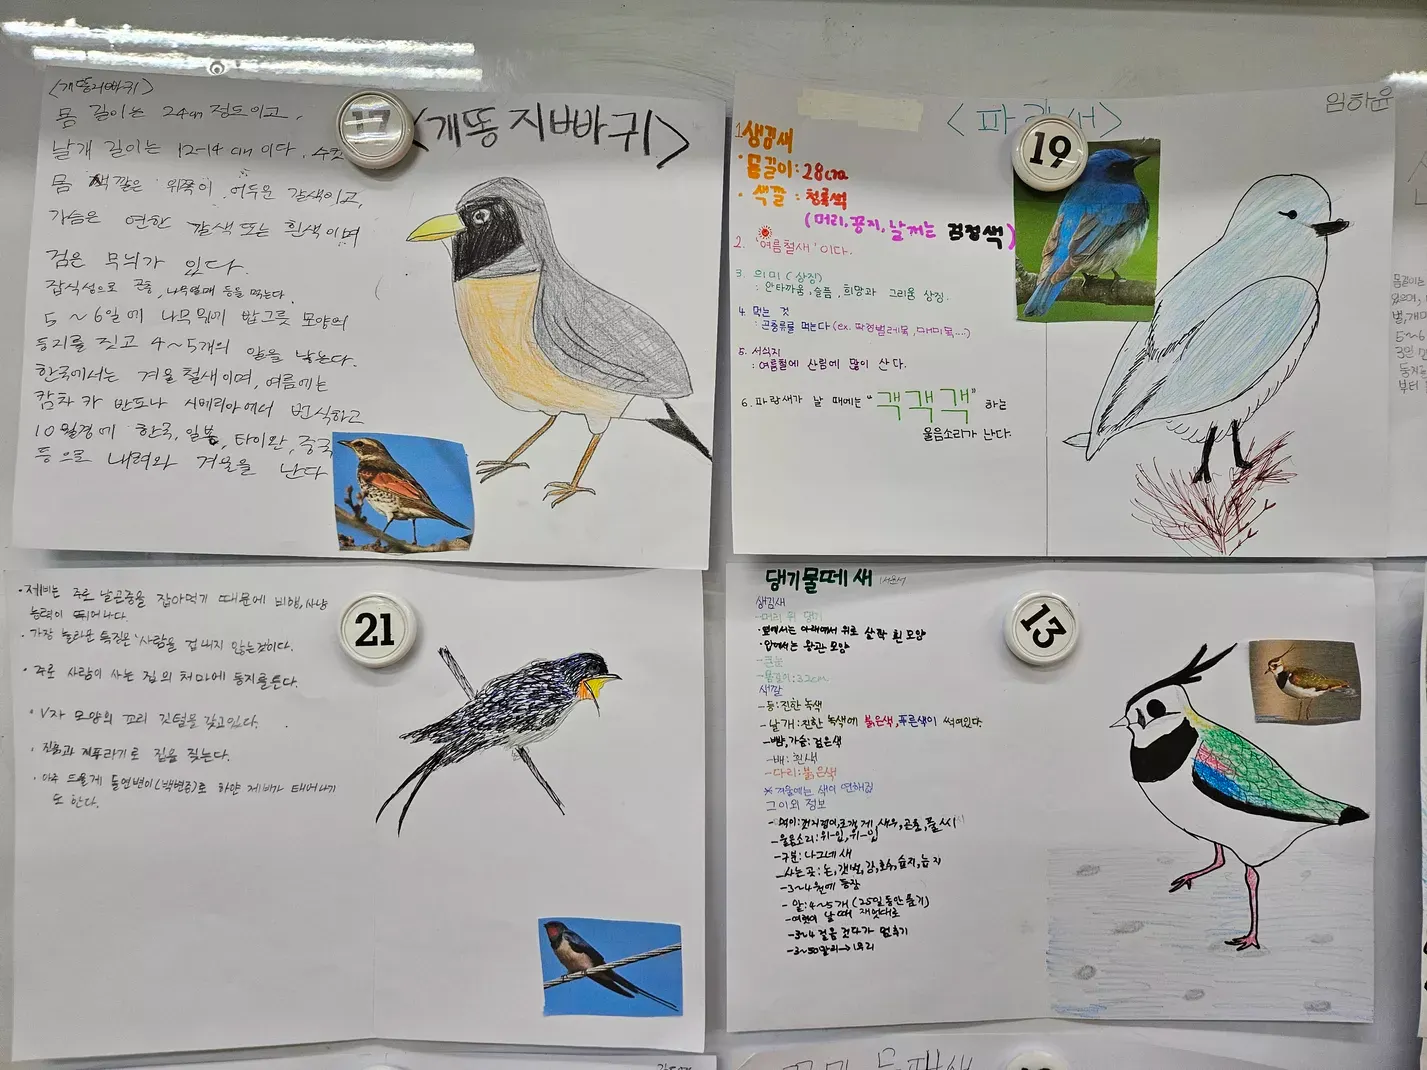 <개똥지빠귀>
몸 길이는 24cm 정도이고,
날개 길이는 12-14cm이다. 수컷
몸 색깔은 위쪽이 어두운 갈색이고,
가슴은 연한 갈색 또는 흰색이며
검은 무늬가 있다.
잡식성으로 곤충, 나무열매 등을 먹는다.
5~6월에 나무위에 밥그릇 모양의
둥지를 짓고 4~5개의 알을 낳는다.
한국에서는 겨울철새이며, 여름에는
캄차카 반도나 시베리아에서 번식하고
10월경에 한국, 일본, 타이완, 중국
등으로 내려와 겨울을 난다
17
<개똥지빠귀>
<파랑새>
임하윤
19
1. 생김새
·몸길이: 28cm
·색깔: 청록색
(머리, 꽁지, 날개는 검정색)
2. '여름철새'이다.
3. 의미(상징)
: 안타까움, 슬픔, 희망과 그리움 상징.
4. 먹는 것
: 곤충류를 먹는다(ex. 딱정벌레목, 매미목...)
5. 서식지
: 여름철에 산림에 많이 산다.
6. 파랑새가 날 때에는 "객객객" 하는
울음소리가 난다.
·제비는 주로 날곤충을 잡아먹기 때문에 비행, 사냥
능력이 뛰어나다.
·가장 놀라운 특징은 사람을 겁내지 않는것이다.
·주로 사람이 사는 집의 처마에 둥지를튼다.
·V자 모양의 꼬리 깃털을 갖고있다.
·진흙과 지푸라기로 집을 짖는다.
·아주 드물게 돌연변이(백변종)로 하얀 제비가 태어나기
도 한다.
21
댕기물떼새
생김새
-머리 위 댕기
·옆에서는 아래에서 위로 살짝 휜 모양
·앞에서는 왕관 모양
-큰눈
-몸길이: 32cm
색깔
-등: 진한 녹색
-날개: 진한 녹색에 붉은색, 푸른색이 섞여있다
-뺨, 가슴: 검은색
-배: 흰색
-다리: 붉은색
※겨울에는 색이 연해짐
그 이외 정보
-먹이: 갯지렁이, 조개, 게, 새우, 곤충, 풀씨
-울음소리: 위-입, 위-입
-구분: 나그네새
-사는 곳: 논, 갯벌, 강, 호수, 습지, 늪지
-3~4월에 등장
-알: 4~5개 (25일동안 품기)
-3~4걸음 걷다가 멈추기
-3~50마리→무리
13